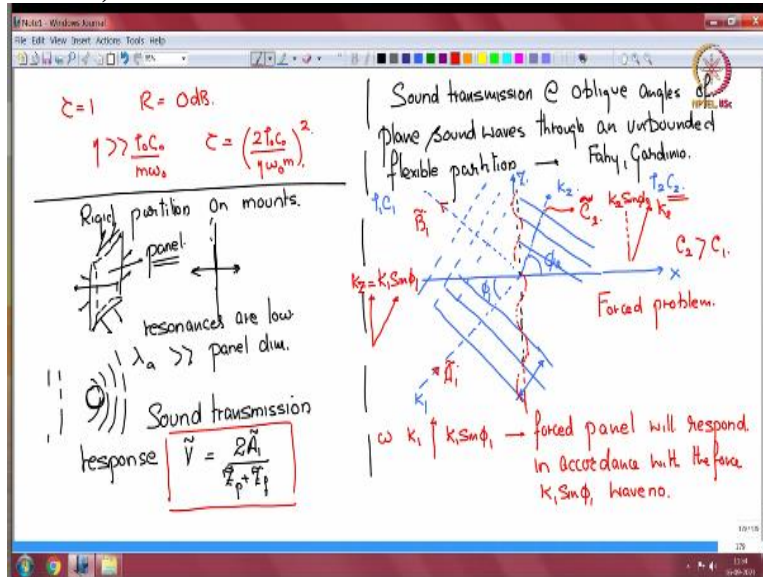 Note1 - Windows Journal
File Edit View Insert Actions Tools Help
NPTEL IISc
τ=1 R = 0dB.
η >> ρ₀C₀/mω₀ τ = (2ρ₀C₀/ηω₀m)².
Rigid partition on mounts.
panel
resonances are low
λₐ >> panel dim.
Sound transmission
response Ṽ = 2Ã₁/z̃p+z̃f
Sound transmission @ oblique angles of
plane sound waves through an unbounded
flexible partition → Fahy, Gardinio.
ρ₁C₁
B̃₁
z.
k₂
C̃₂.
k₂Sinφ₂
k₂
ρ₂C₂
C₂ > C₁.
kz=k₁Sinφ₁
φ₁
φ₂
x
Forced problem.
Ã₁
k₁
ω k₁ k₁Sinφ₁ → forced panel will respond
in accordance with the force
k₁Sinφ₁ wave no.
179